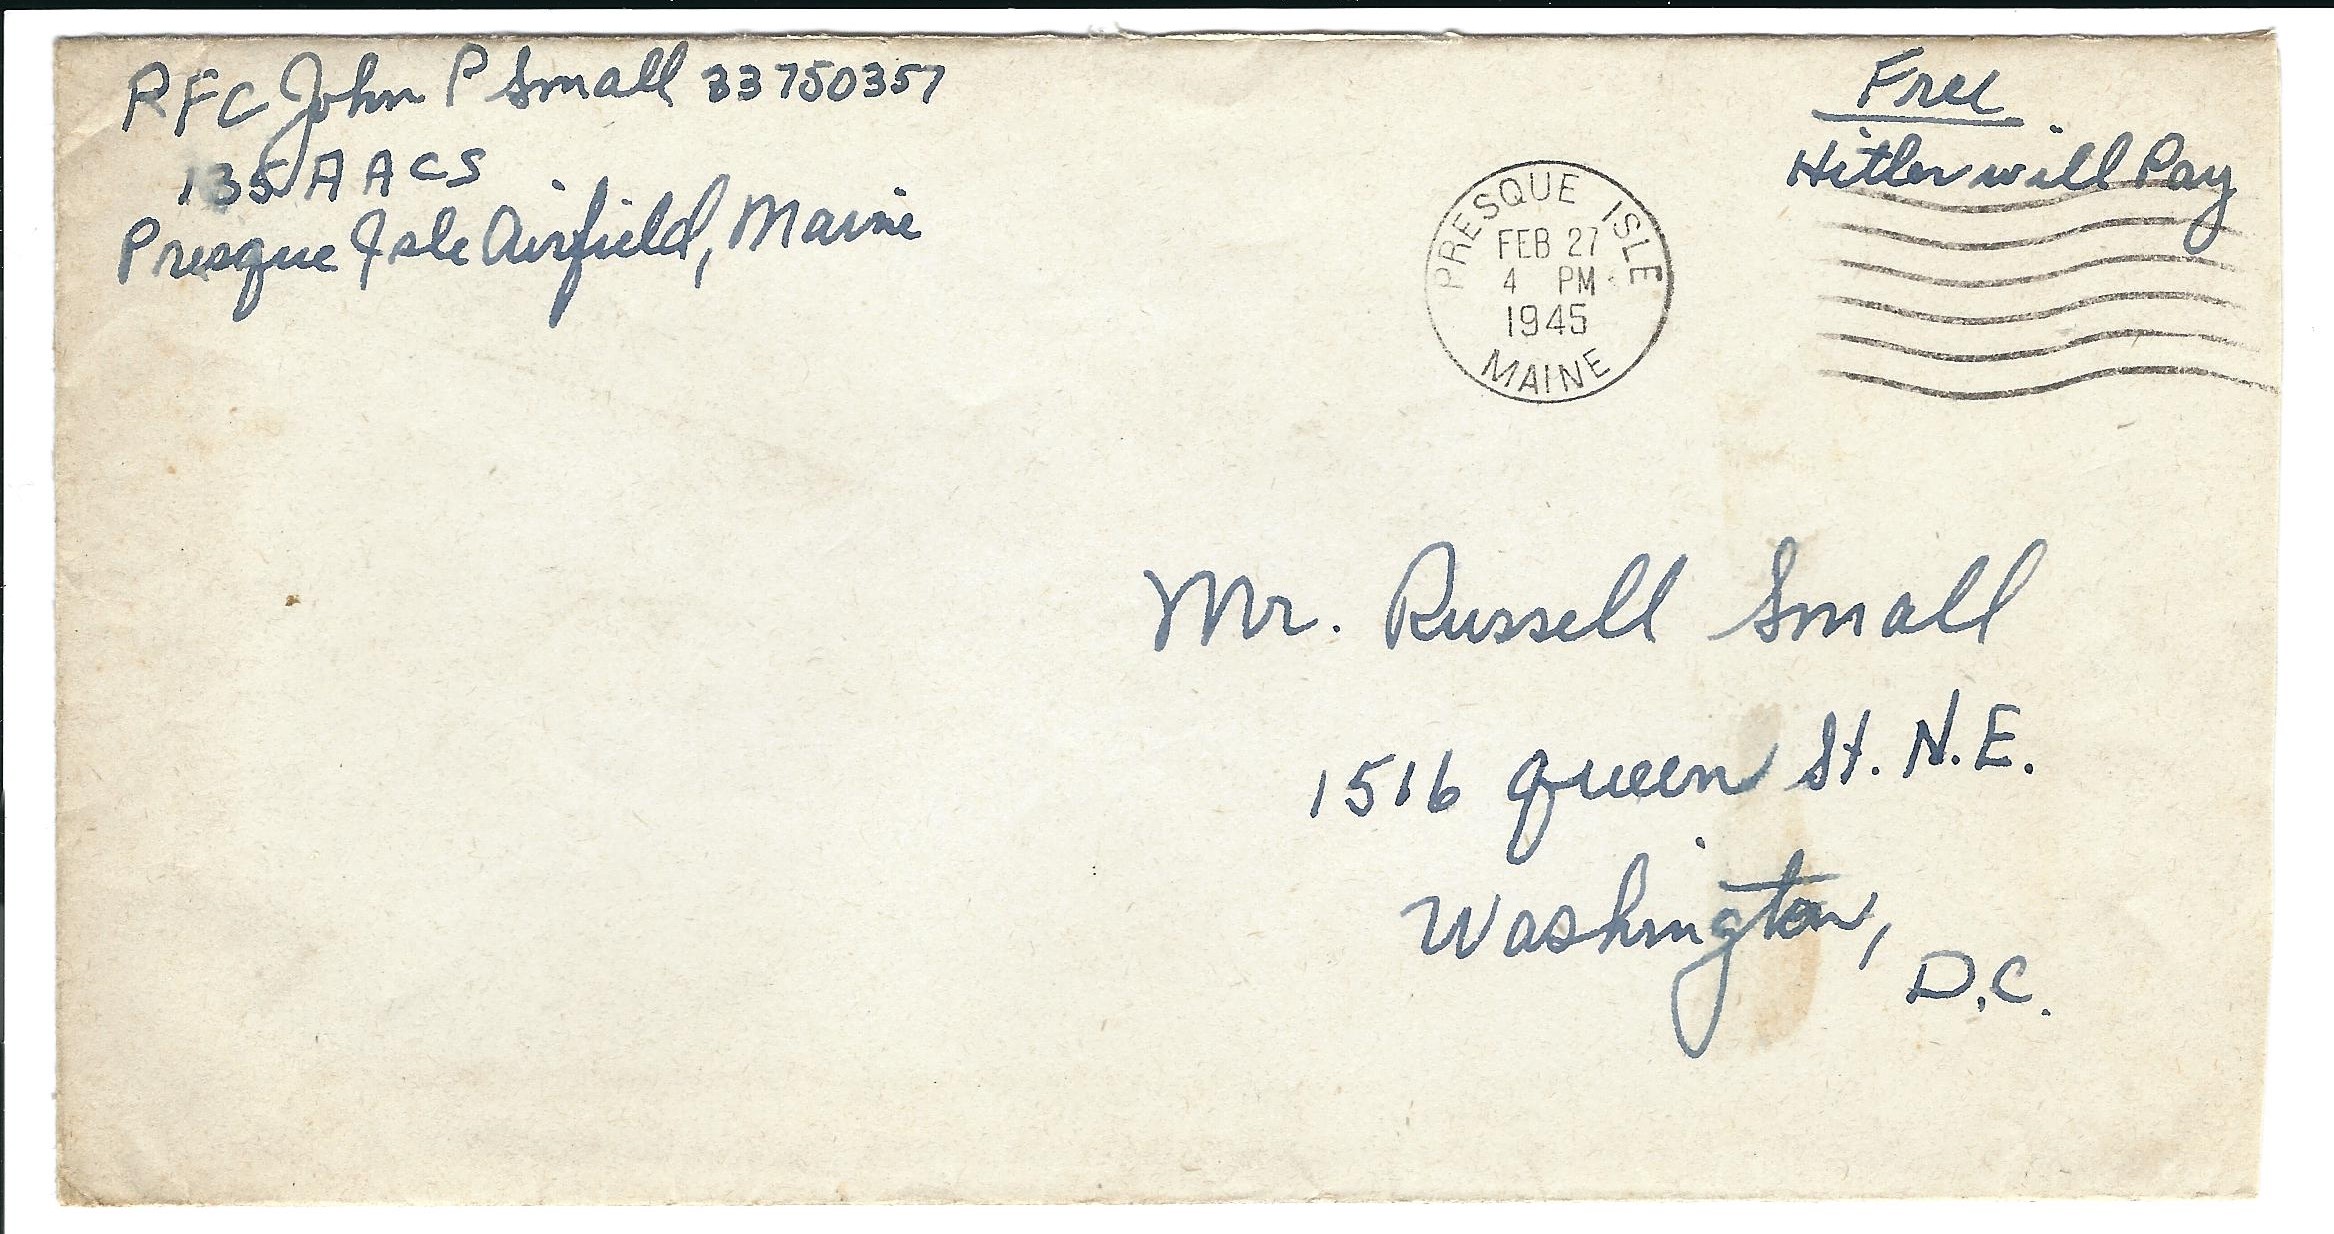 PFC John P Small 33750357
135 A A C S
Presque Isle Airfield, Maine
Free
Hitler will Pay
PRESQUE ISLE
FEB 27
4 PM
1945
MAINE
Mr. Russell Small
1516 Queen St. N.E.
Washington,
D.C.